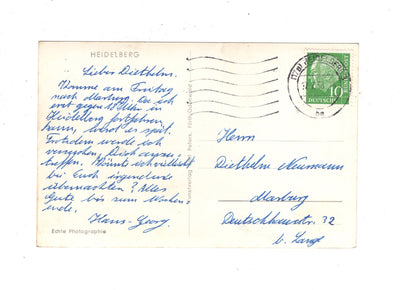 HEIDELBERG
Lieber Diethelm.
Komme am Freitag
nach Marburg. Da ich
erst gegen 18 Uhr in
Heidelberg fortfahren
kann, wird es spät.
Trotzdem werde ich
versuchen, Dich anzu-
treffen. Könnte ich vielleicht
bei Euch irgendwo
übernachten? Alles
Gute bis zum Wochen-
ende.
Hans-Georg.
Echte Photographie
10
DEUTSCHE
Herrn
Diethelm Neumann
Marburg
Deutschhausstr. 32
b. Lange